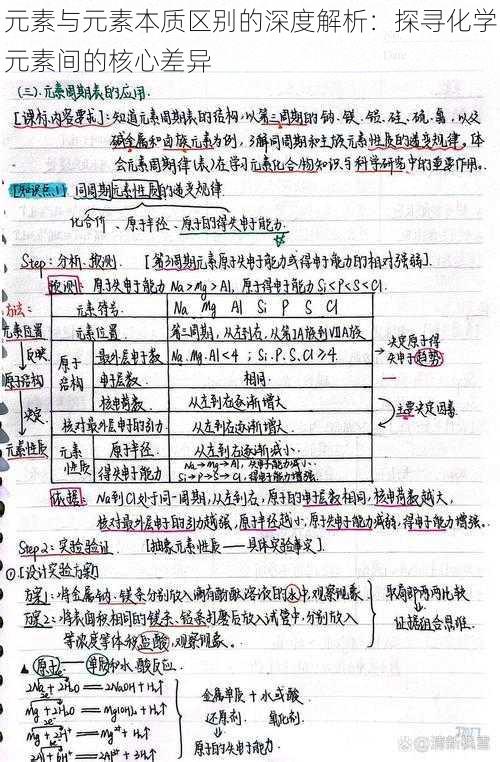 元素与元素本质区别的深度解析：探寻化学
元素间的核心差异
(三).元素周期表的应用.
[课标内容要求]:知道元素周期表的结构,以第三周期的钠、镁、铝、硅、硫、氯,以及
碱金属和卤族元素为例,了解同周期和主族元素性质的递变规律。体
会元素周期律(表)在学习元素化合物知识与科学研究中的重要作用。
[知识点1] 同周期元素性质的递变规律
化合价、原子半径、原子的得失电子能力.
Step1:分析、预测. [第3周期元素原子失电子能力或得电子能力的相对强弱].
预测: 原子失电子能力Na>Mg>Al, 原子得电子能力Si<P<S<Cl.
方法:
元素符号. Na Mg Al Si P S Cl
元素位置 元素位置. 第三周期,从左到右,从第IA族到VIIA族
↓反映 原子结构 最外层电子数 Na.Mg.Al<4 ; Si.P.S.Cl≥4. → 决定原子得失电子趋势
原子结构 电子层数. 相同.
核电荷数. 从左到右逐渐增大
↓决定 核对最外层电子的引力. 从左到右逐渐增大. 主要决定因素.
元素性质 元素性质 原子半径. 从左到右逐渐减小.
得失电子能力 Na→Mg→Al,失电子能力减小.
Si→P→S→Cl,得电子能力增强.
依据: Na到Cl处于同一周期,从左到右,原子的电子层数相同,核电荷数越大,
核对最外层电子的引力越强,原子半径越小,原子失电子能力减弱,得电子能力增强.
Step2:实验验证. [抽象元素性质——具体实验事实].
①[设计实验方案]
方案1:将金属钠、镁条分别放入滴有酚酞溶液的水中,观察现象.
方案2:将表面积相同的镁条、铝条打磨后放入试管中,分别放入
等浓度等体积盐酸,观察现象。
取局部两两比较
↓
证据组合思维.
▲原理—— 单质和水、酸反应.
2Na+2H₂O══2NaOH+H₂↑
Mg+2H₂O══Mg(OH)₂+H₂↑
Mg+2H⁺══Mg²⁺+H₂↑
2Al+6H⁺══2Al³⁺+3H₂↑
金属单质 + 水或酸
还原剂. 氧化剂.
↓
原子的失电子能力.